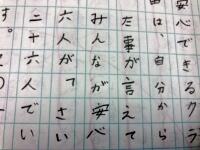 安心できるクラ
由は、自分から
た事が言えて
みんなが安心
六人が、さい
二十六人でい
す。